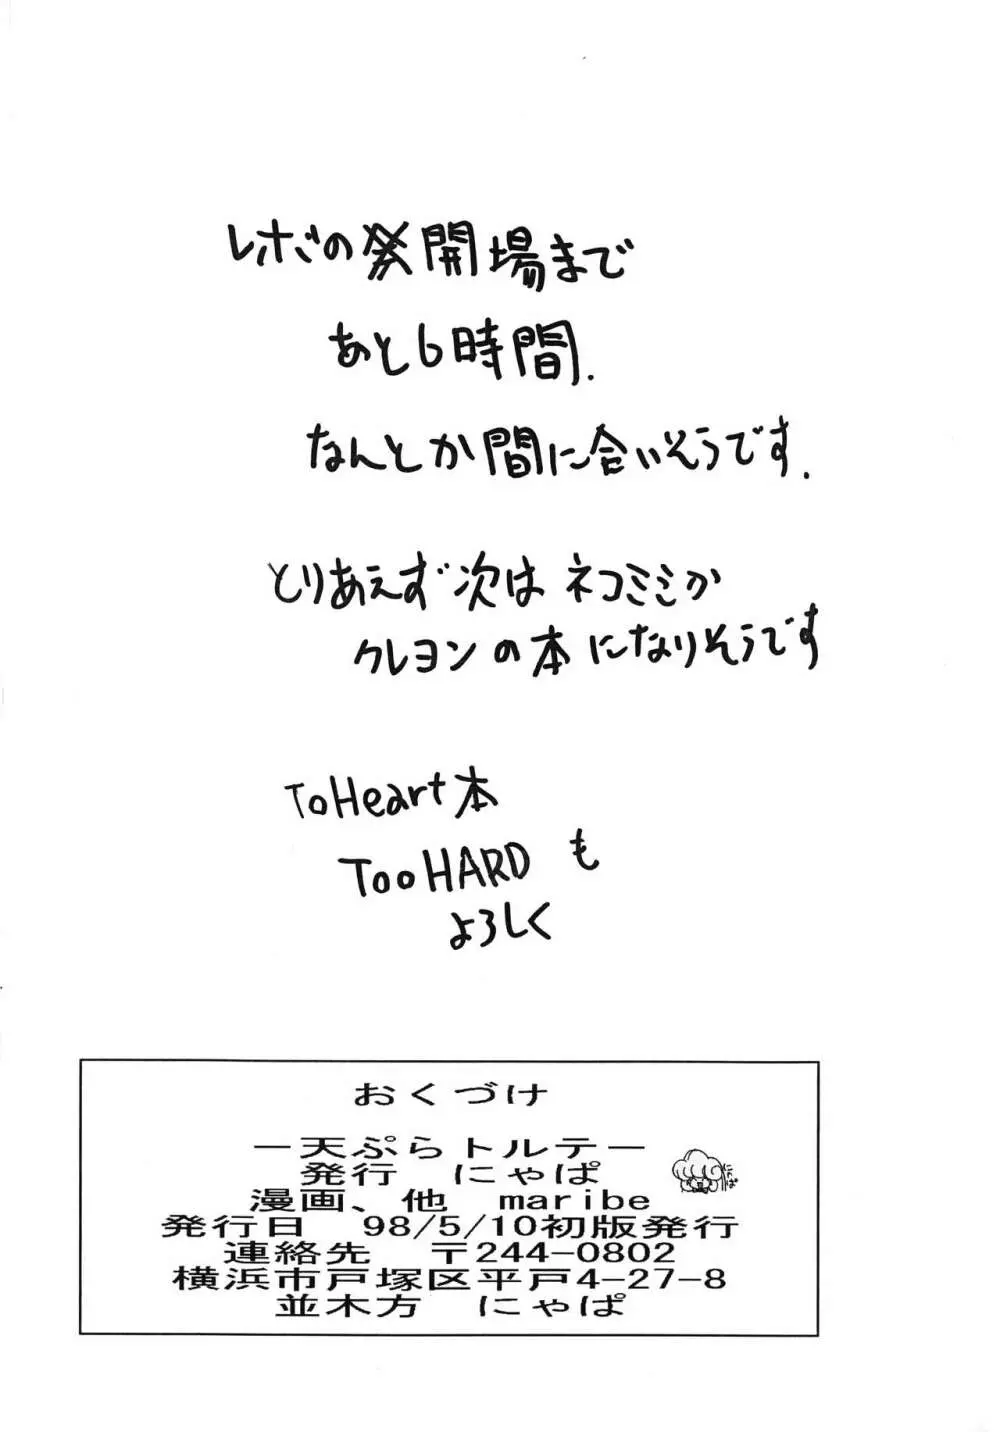 レボの開場まで
あと6時間.
なんとか間に合いそうです.
とりあえず次はネコミミか
クレヨンの本になりそうです
ToHeart本
TooHARDも
よろしく
おくづけ
―天ぷらトルテ―
発行　にゃぱ
漫画、他　maribe
発行日　98/5/10初版発行
連絡先　〒244-0802
横浜市戸塚区平戸4-27-8
並木方　にゃぱ
にゃぱ